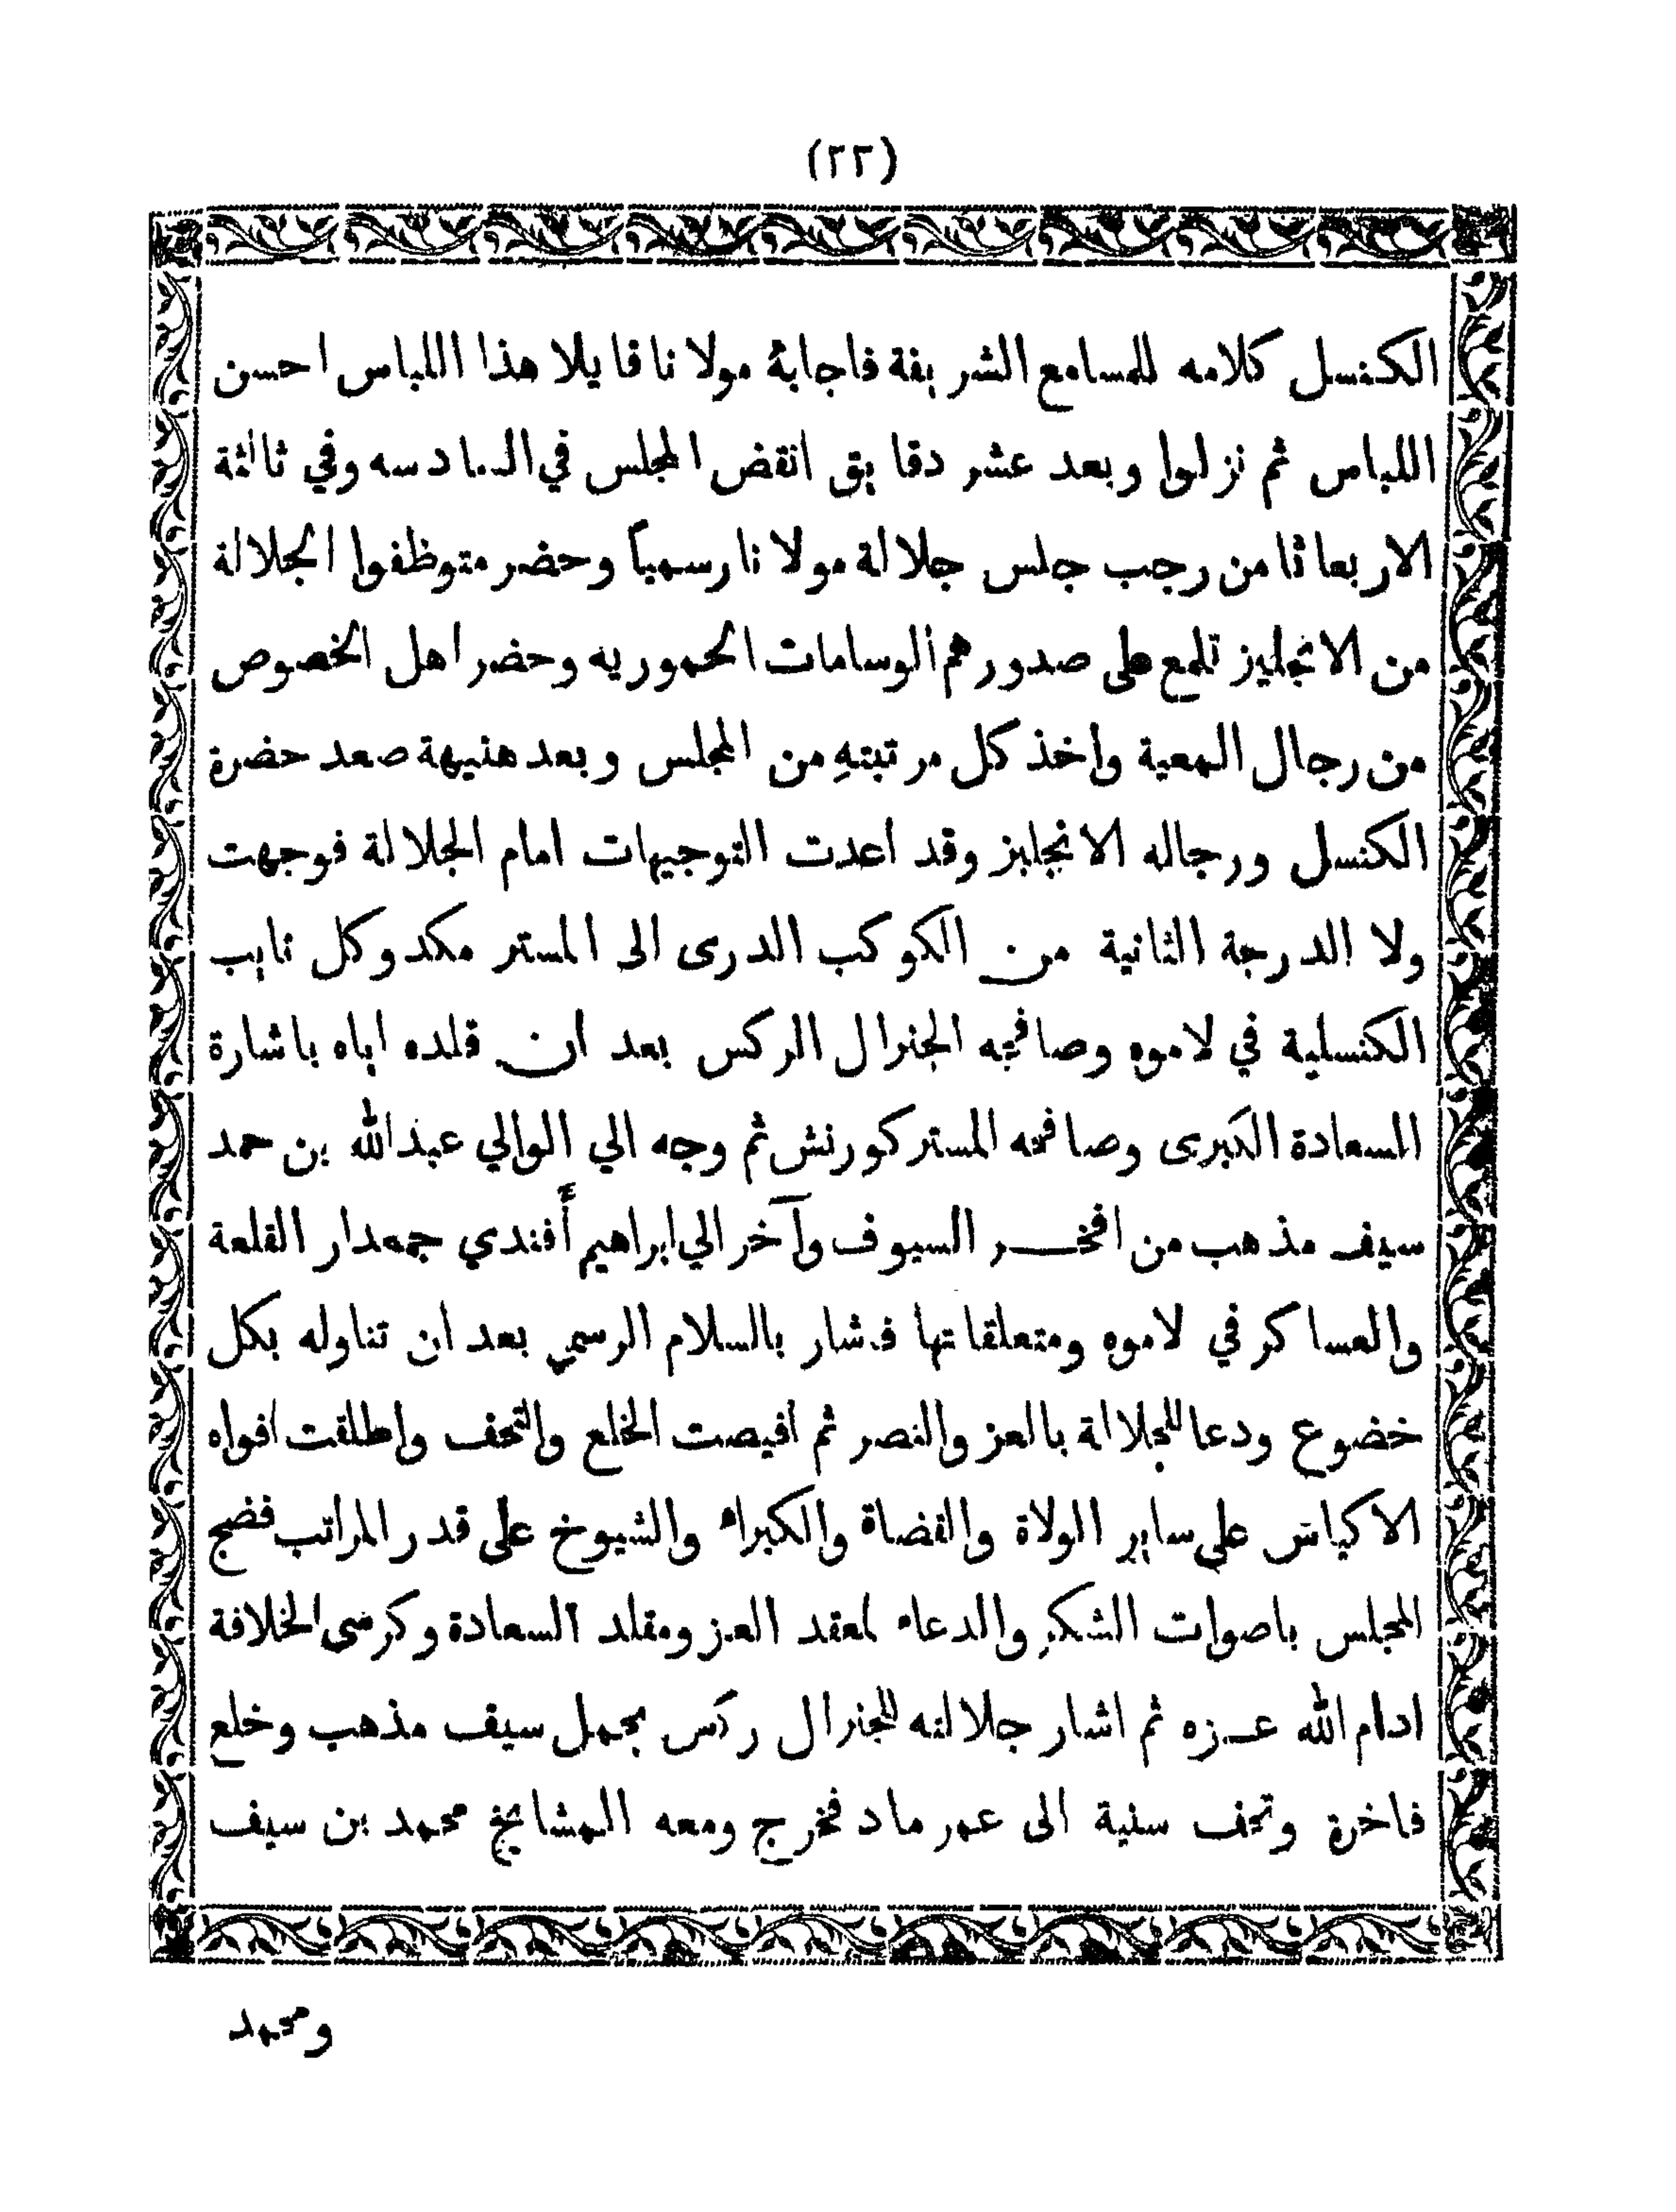 (٢٢)
الكنسل كلامه للمسامع الشريفة فاجابهُ مولانا قايلا هذا اللباس احسن
اللباس ثم نزلوا وبعد عشر دقايق انقض المجلس في السادسه وفي ثالثة
الاربعا ثامن رجب جلس جلالة مولانا رسمياً وحضر متوظفوا الجلالة
من الانجليز تلمع على صدورهم الوسامات الحموريه وحضر اهل الخصوص
من رجال المعية واخذ كل مرتبتهِ من المجلس وبعد هنيهة صعد حضرة
الكنسل ورجاله الانجليز وقد اعدت التوجيهات امام الجلالة فوجهت
ولا الدرجة الثانية من الكوكب الدرى الى المستر مكدوكل نايب
الكنسلية في لاموه وصافحه الجنرال الركس بعد ان قلده اياه باشارة
السعادة الكبرى وصافحه المستر كورنش ثم وجه الي الوالي عبدالله بن حمد
سيف مذهب من افخر السيوف وآخر الي ابراهيم أفندي جمعدار القلعة
والعساكر في لاموه ومتعلقاتها فشار بالسلام الرسمي بعد ان تناوله بكل
خضوع ودعا للجلالة بالعز والنصر ثم افيصت الخلع والتحف واطلقت افواه
الاكياس علي ساير الولاة والقضاة والكبراء والشيوخ على قدر المراتب فضج
المجلس باصوات الشكر والدعاء لمعقد العز ومقلد السعادة وكرسى الخلافة
ادام الله عزه ثم اشار جلالته للجنرال ركس بجمل سيف مذهب وخلع
فاخرة وتحف سنية الى عمر ماد فخرج ومعه المشايخ محمد بن سيف
ومحمد